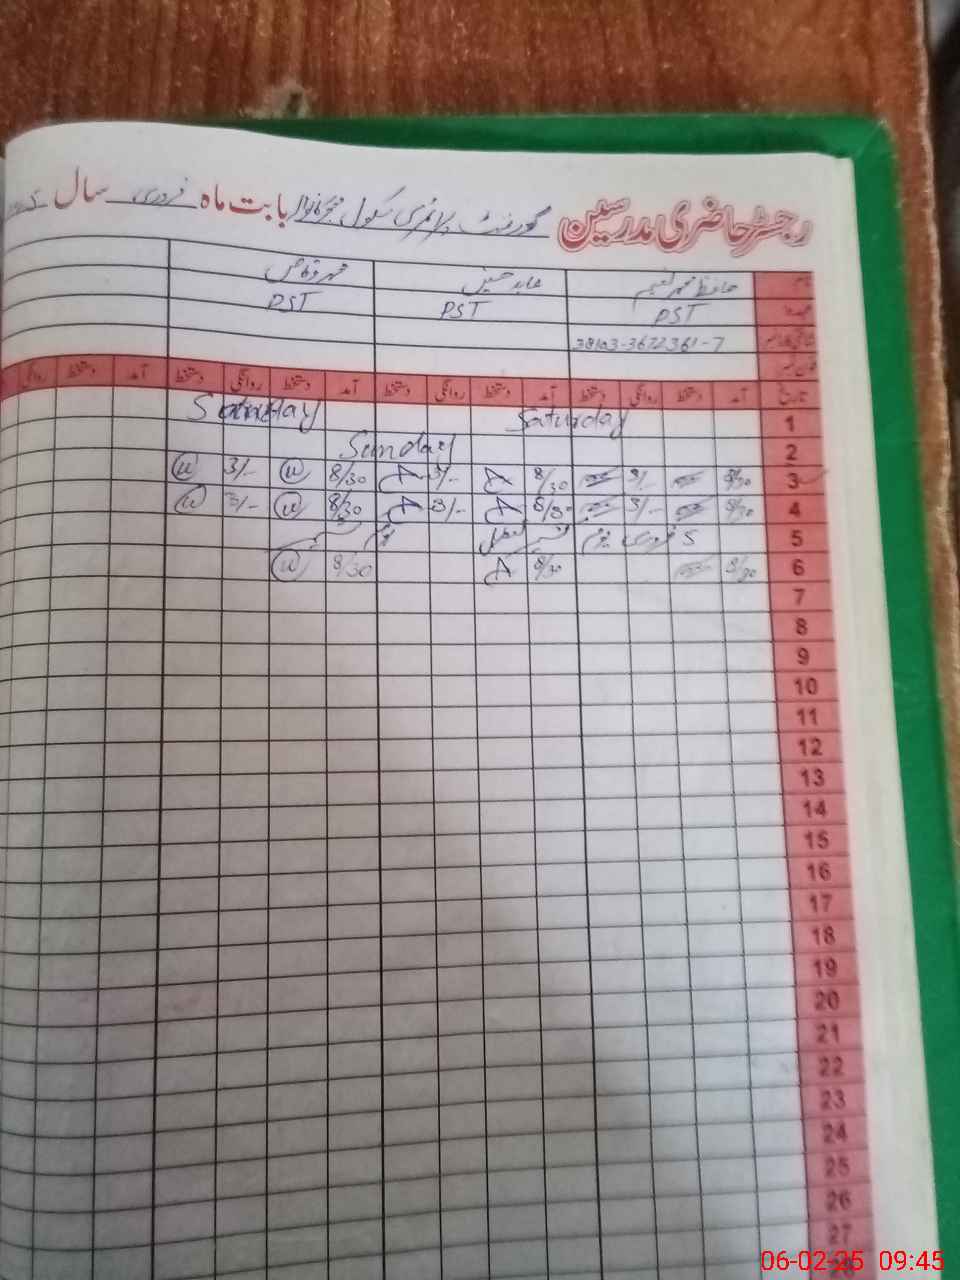 رجسٹر حاضری مدرسین گورنمنٹ پرائمری سکول بابت ماہ فروری سال
نام حافظ محمد نعیم عابد حسین محمد وقاص
عہدہ PST PST PST
38103-3672361-7
تاریخ آمد دستخط روانگی دستخط آمد دستخط روانگی دستخط آمد دستخط روانگی دستخط آمد دستخط روانگی
1 Saturday Saturday
2 Sunday
3 8/30 3/- 8/30 3/- 8/30 3/-
4 8/30 3/- 8/30 3/- 8/30 3/-
5 5 فروری یوم کشمیر تعطیل
6 8/30 8/30 8/30
7
8
9
10
11
12
13
14
15
16
17
18
19
20
21
22
23
24
25
26
27
06-02-25 09:45